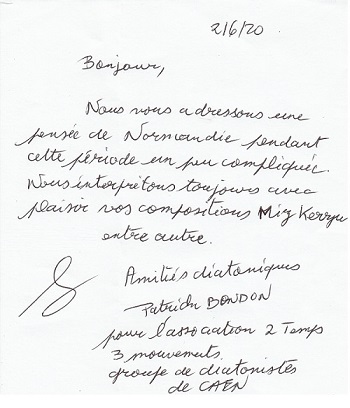 2/6/20
Bonjour,
Nous vous adressons une
pensée de Normandie pendant
cette période un peu compliquée.
Nous interprétons toujours avec
plaisir vos compositions Miz Kerzu
entre autre.
Amitiés diatoniques
BONDON
pour l'association 2 Temps
3 mouvements.
groupe de diatonistes
de CAEN